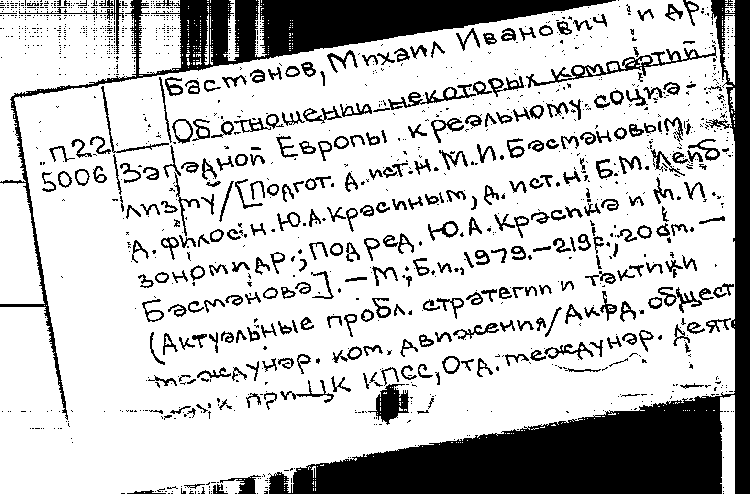 Басманов, Михаил Иванович и др.
Об отношении некоторых компартий
п22
5006
Западной Европы к реальному социа-
лизму/[Подгот. д. ист. н. М.И. Басмановым,
д. филос. н. Ю.А. Красиным, д. ист. н. Б.М. Лейб-
зоном и др.; Под ред. Ю.А. Красина и М.И.
Басманова]. — М.; Б.и., 1979. — 219 с.; 20 см. —
(Актуальные пробл. стратегии и тактики
междунар. ком. движения/Акад. обществ
наук при ЦК КПСС, Отд. междунар. деяте